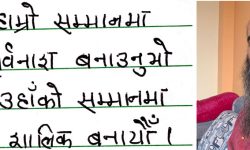 हाम्रो सम्मानमा
सर्वनाश बनाउनुभो
उहाँको सम्मानमा
शालिक बनायौँ ।